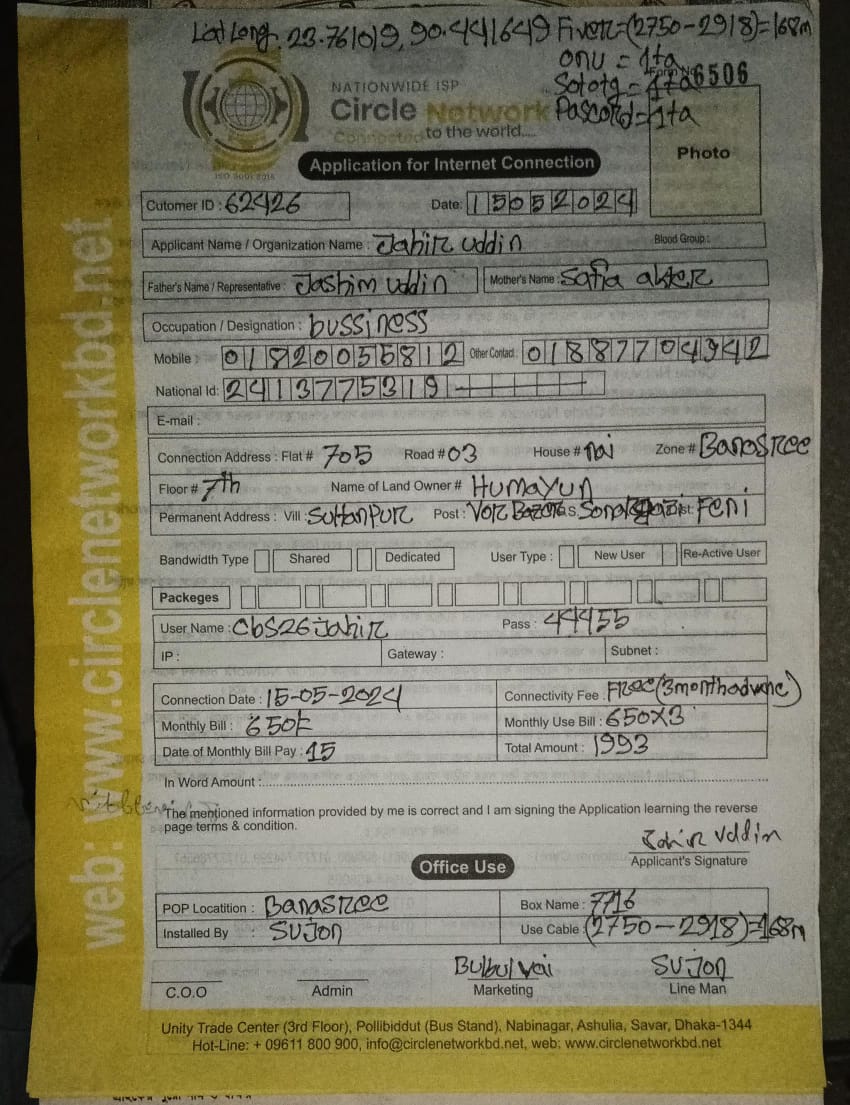 Lat Long: 23.761019, 90.441649 Fiver=(2750-2918)=168m
onu = 1ta
6506
Pascord=1ta
NATIONWIDE ISP
Circle Network
Connected to the world....
Photo
ISO 9001:2015
Application for Internet Connection
Cutomer ID : 62426 Date: 15052024
Applicant Name / Organization Name : Jahir uddin Blood Group :
Father's Name / Representative : Jashim uddin Mother's Name : Safia akter
Occupation / Designation : bussiness
Mobile : 01820055812 Other Contact : 01887704942
National Id: 2413775319
E-mail :
Connection Address : Flat # 705 Road # 03 House # nai Zone # BanaSree
Floor # 7th Name of Land Owner # Humayun
Permanent Address : Vill : Sultanpur Post : Vor Bazar P.S. Sonagazi Dist: Feni
Bandwidth Type Shared Dedicated User Type : New User Re-Active User
Packeges
User Name : CbS26Jahir Pass : 44455
IP : Gateway : Subnet :
Connection Date : 15-05-2024 Connectivity Fee : Free (3month advanc)
Monthly Bill : 650 Monthly Use Bill : 650X3
Date of Monthly Bill Pay : 15 Total Amount : 1993
In Word Amount :
The mentioned information provided by me is correct and I am signing the Application learning the reverse
page terms & condition.
Jahir Uddin
Applicant's Signature
Office Use
POP Locatition : BanaSree Box Name : 7716
Installed By : SUJON Use Cable : (2750-2918)=168m
Bulbul vai SUJON
C.O.O Admin Marketing Line Man
Unity Trade Center (3rd Floor), Pollibiddut (Bus Stand), Nabinagar, Ashulia, Savar, Dhaka-1344
Hot-Line: + 09611 800 900, info@circlenetworkbd.net, web: www.circlenetworkbd.net
web: www.circlenetworkbd.net